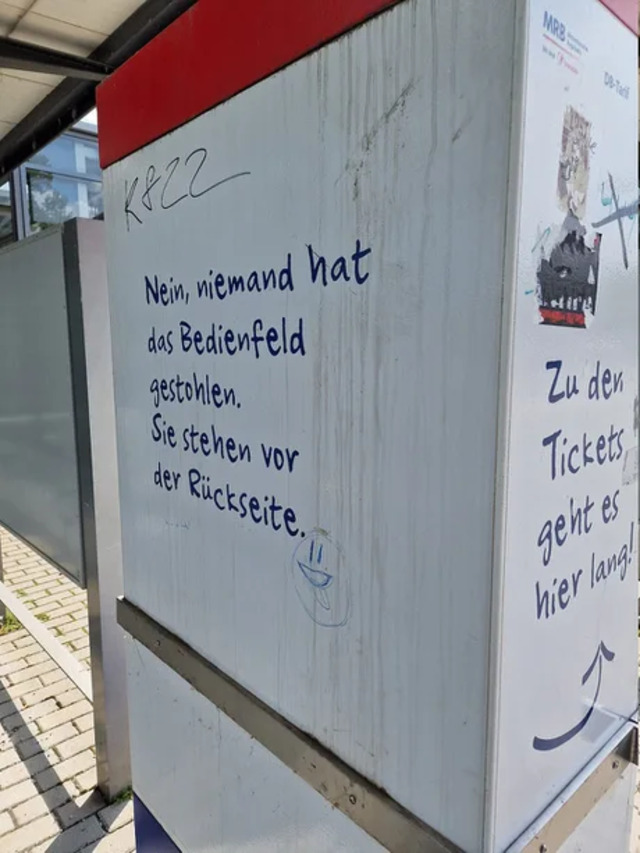 K822
Nein, niemand hat
das Bedienfeld
gestohlen.
Sie stehen vor
der Rückseite.
MRB
DB-Tarif
Zu den
Tickets
geht es
hier lang!